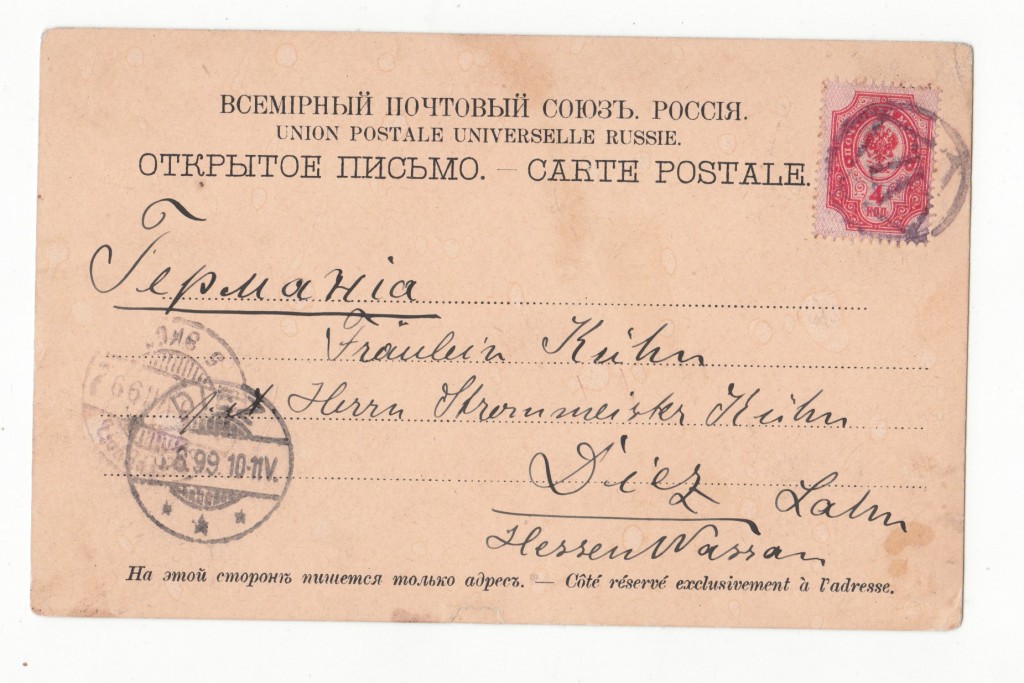 ВСЕМІРНЫЙ ПОЧТОВЫЙ СОЮЗЪ. РОССІЯ.
UNION POSTALE UNIVERSELLE RUSSIE.
ОТКРЫТОЕ ПИСЬМО. — CARTE POSTALE.
4
КОП
Германія
Fräulein Kühn
Herrn Strommeister Kühn
Diez Lahn
Hessen Nassau
99 10-11V.
На этой сторонѣ пишется только адресъ. — Côté réservé exclusivement à l'adresse.